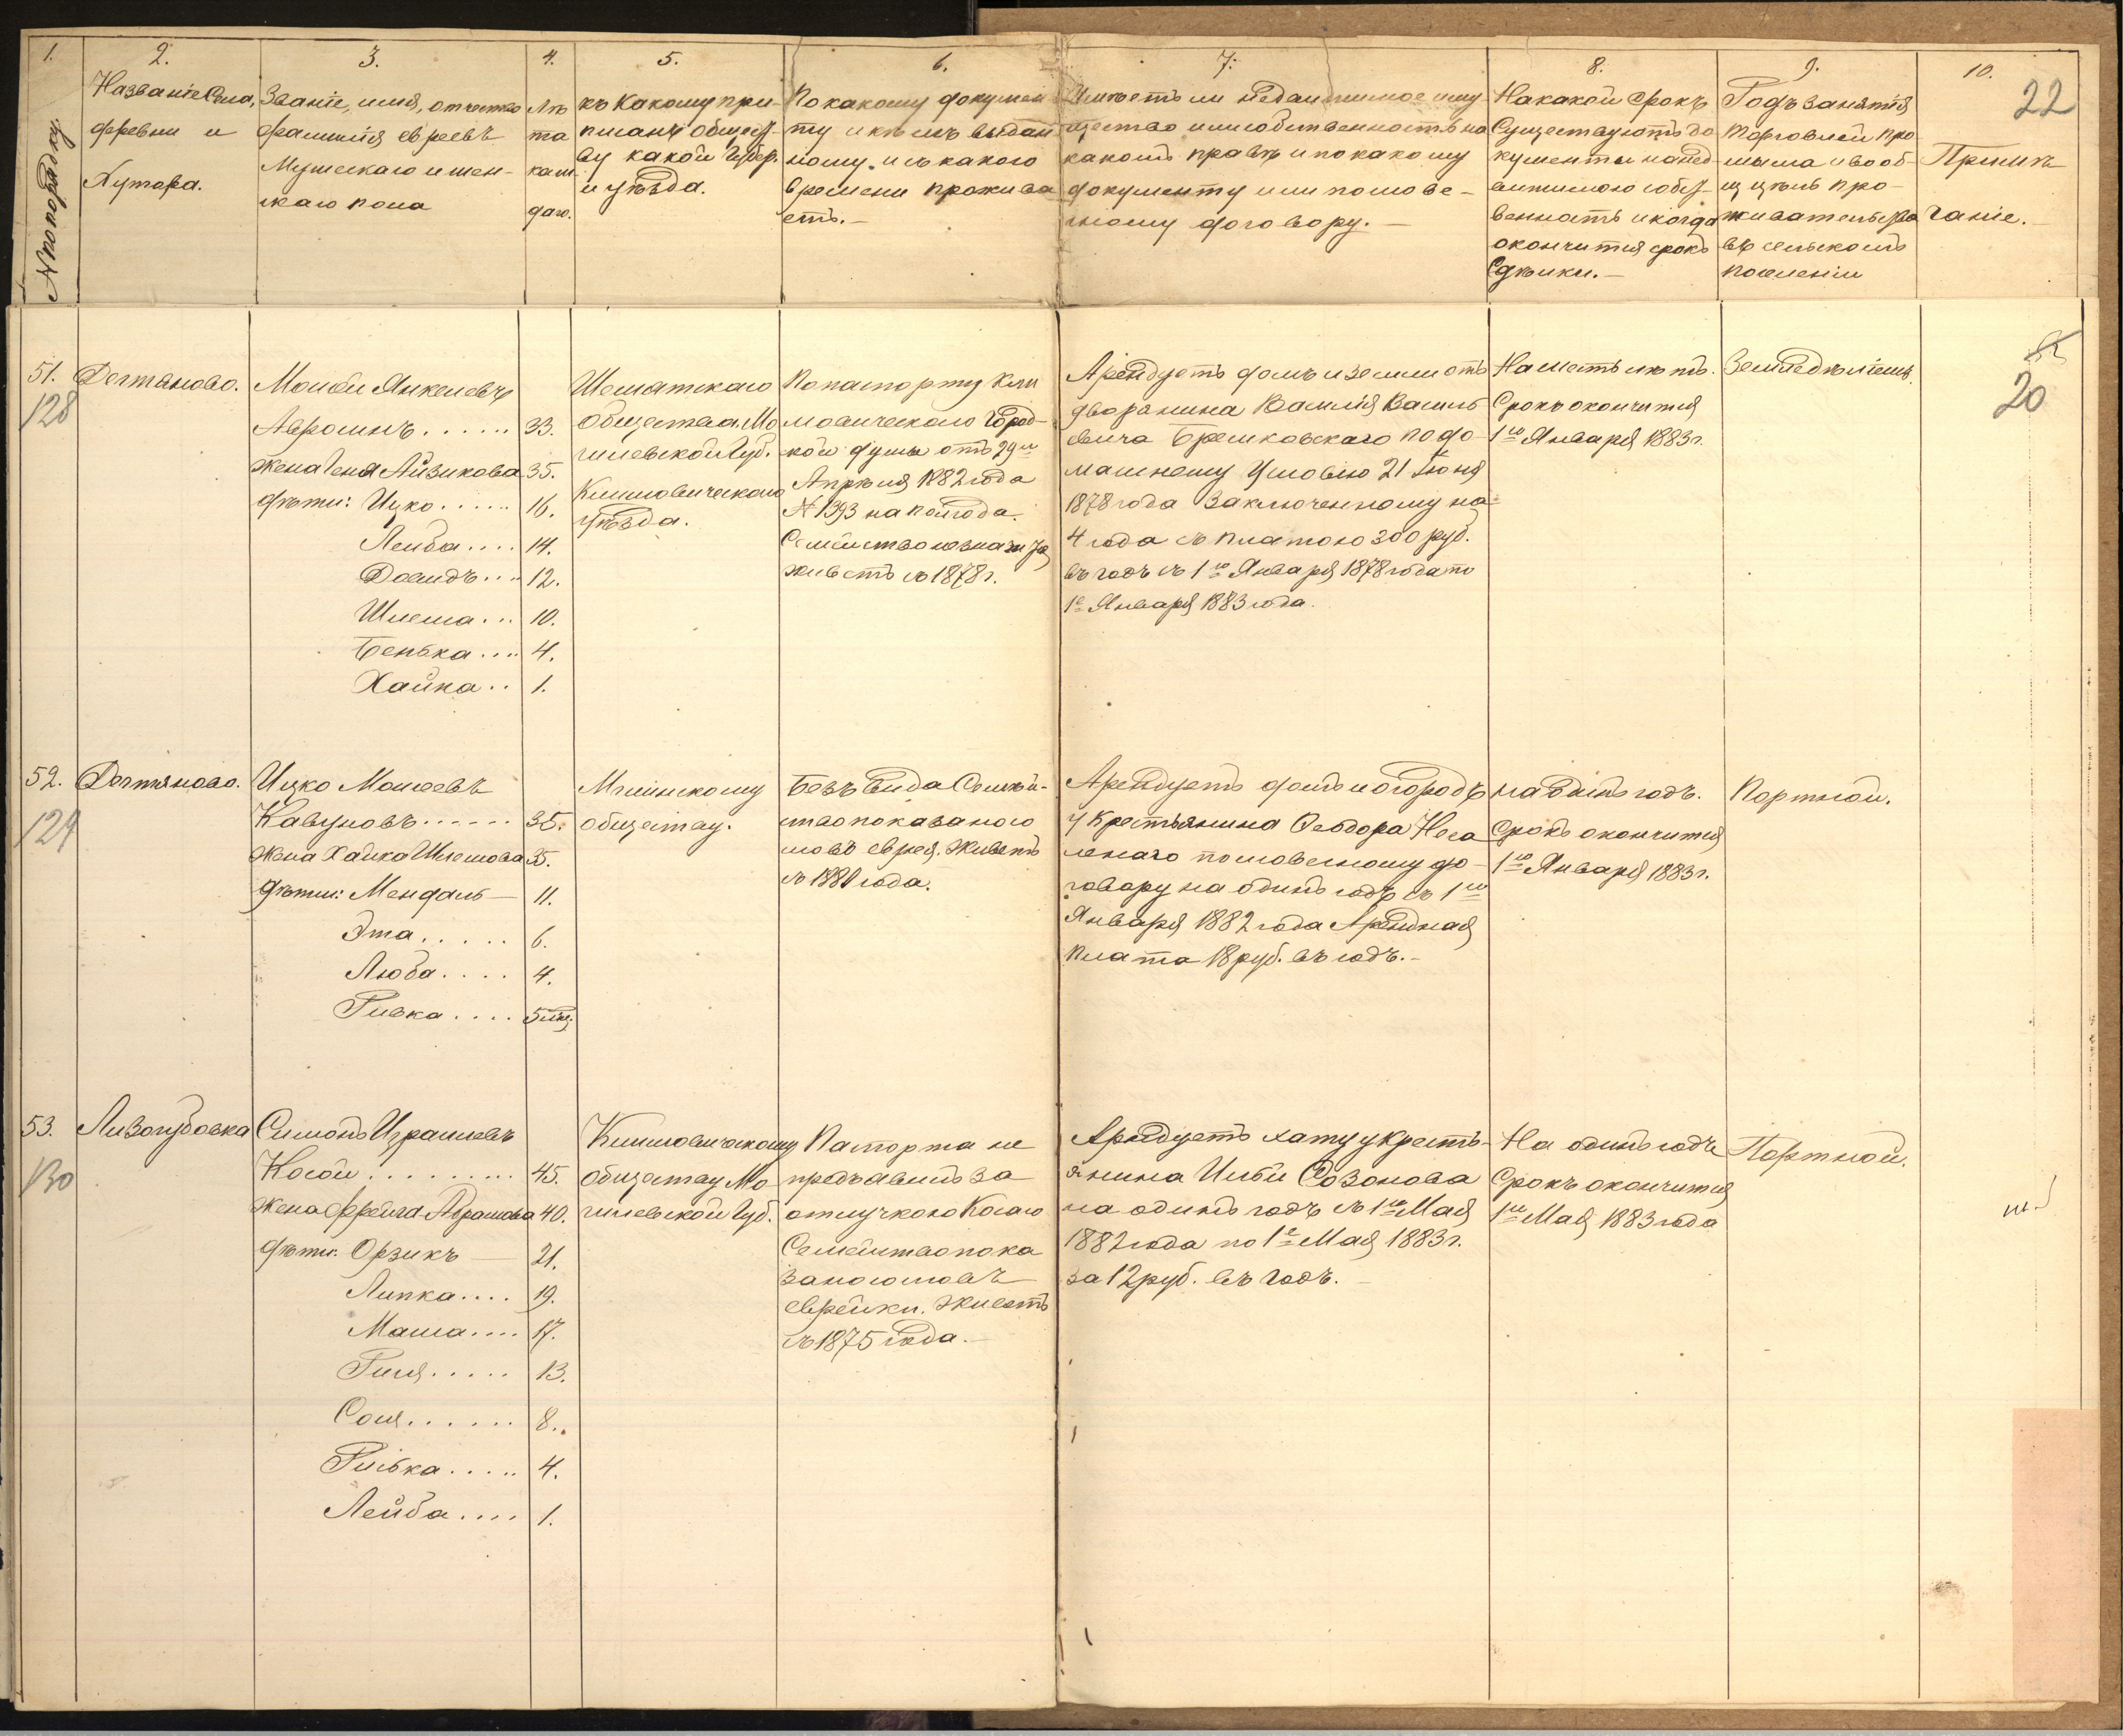 1. 2. 3. 4. 5. 6. 7. 8. 9. 10.
22
№ по порядку.
Названіе Села,
деревни и
Хутора.
Званіе, имя, отчество
фамилія евреевъ
Мужскаго и жен-
скаго пола
Лѣ
та
каж
даго.
къ Какому при-
писанъ общест-
ву какой Губер.
и уѣзда.
По какому докумен
ту и кѣмъ выдан
ному и съ какого
времени прожива
етъ.-
Имѣетъ ли недвижимое иму
щество или собственность на
какомъ правѣ и по какому
документу или слове-
сному договору.-
На какой срокъ
Существуютъ до
кументы на нед
вижимою собст
венность и когда
окончится срокъ
Сдѣлки.-
Родъ занятія
торговлей про
мысла и вооб-
ще цѣль про-
живательства
въ сельскомъ
поселеніи
Примѣ
чаніе.
51.
128
Дегтяново.
Мовша Янкелевъ
Авроминъ...... 33.
Жена Геня Айзикова 35.
дѣти: Ицко...... 16.
Лейба.... 14.
Довидъ.... 12.
Шлема... 10.
Бенька.... 4.
Хайка.. 1.
общества Мо
гилевской Губ.
Климовическаго
уѣзда.
По паспорту Кли
мовической Город-
кой думы отъ 29го
Апрѣля 1882 года
№ 1393 на полгода.
живетъ съ 1878 г.
Арендуетъ домъ и землю отъ
дворянина Василія Василь
евича Брешковскаго по до-
машнему Условію 21 Іюня
1878 года заключенному на
4 года съ платою 300 руб.
въ годъ съ 1го Января 1878 года по
1е Января 1883 года.
Срокъ окончится
1го Января 1883 г.
20
52.
129
Дегтяново.
Ицко Моисеевъ
Кавуновъ...... 35.
Жена Хайка Шлемова 35.
дѣти: Мендаль— 11.
Эта..... 6.
Люба.... 4.
Ривка.... 5 мц.
Мглинскому
обществу.
Безъ вида Семѣй-
ство показано со
словъ еврея. Живетъ
съ 1881 года.
Арендуетъ домъ и огородъ
у Крестьянина Феодора
по словесному до-
говору на одинъ годъ съ 1го
Января 1882 года Арендная
плата 18 руб. въ годъ.-
на одинъ годъ.
Срокъ окончится
1го Января 1883 г.
Портной.
53.
130
Лизогубовка
Симонъ Израилевъ
Носои......... 45.
Жена Фрейга Абрамова 40.
дѣти: Орзикъ— 21.
Липка.... 19.
Маша.... 17.
Гися..... 13.
Сося...... 8.
Рибка..... 4.
Лейба.... 1.
Климовическому
обществу Мо
гилевской Губ.
Паспорта не
предъявилъ за
отлучкою
Семейство пока
зано со словъ
еврейки. Живетъ
съ 1875 года.-
Арендуетъ хату у кресть-
янина Ильи Созонова
на одинъ годъ съ 1го Мая
1882 года по 1е Мая 1883 г.
за 12 руб. въ годъ.-
На одинъ годъ
Срокъ окончится
1го Мая 1883 года
Портной.